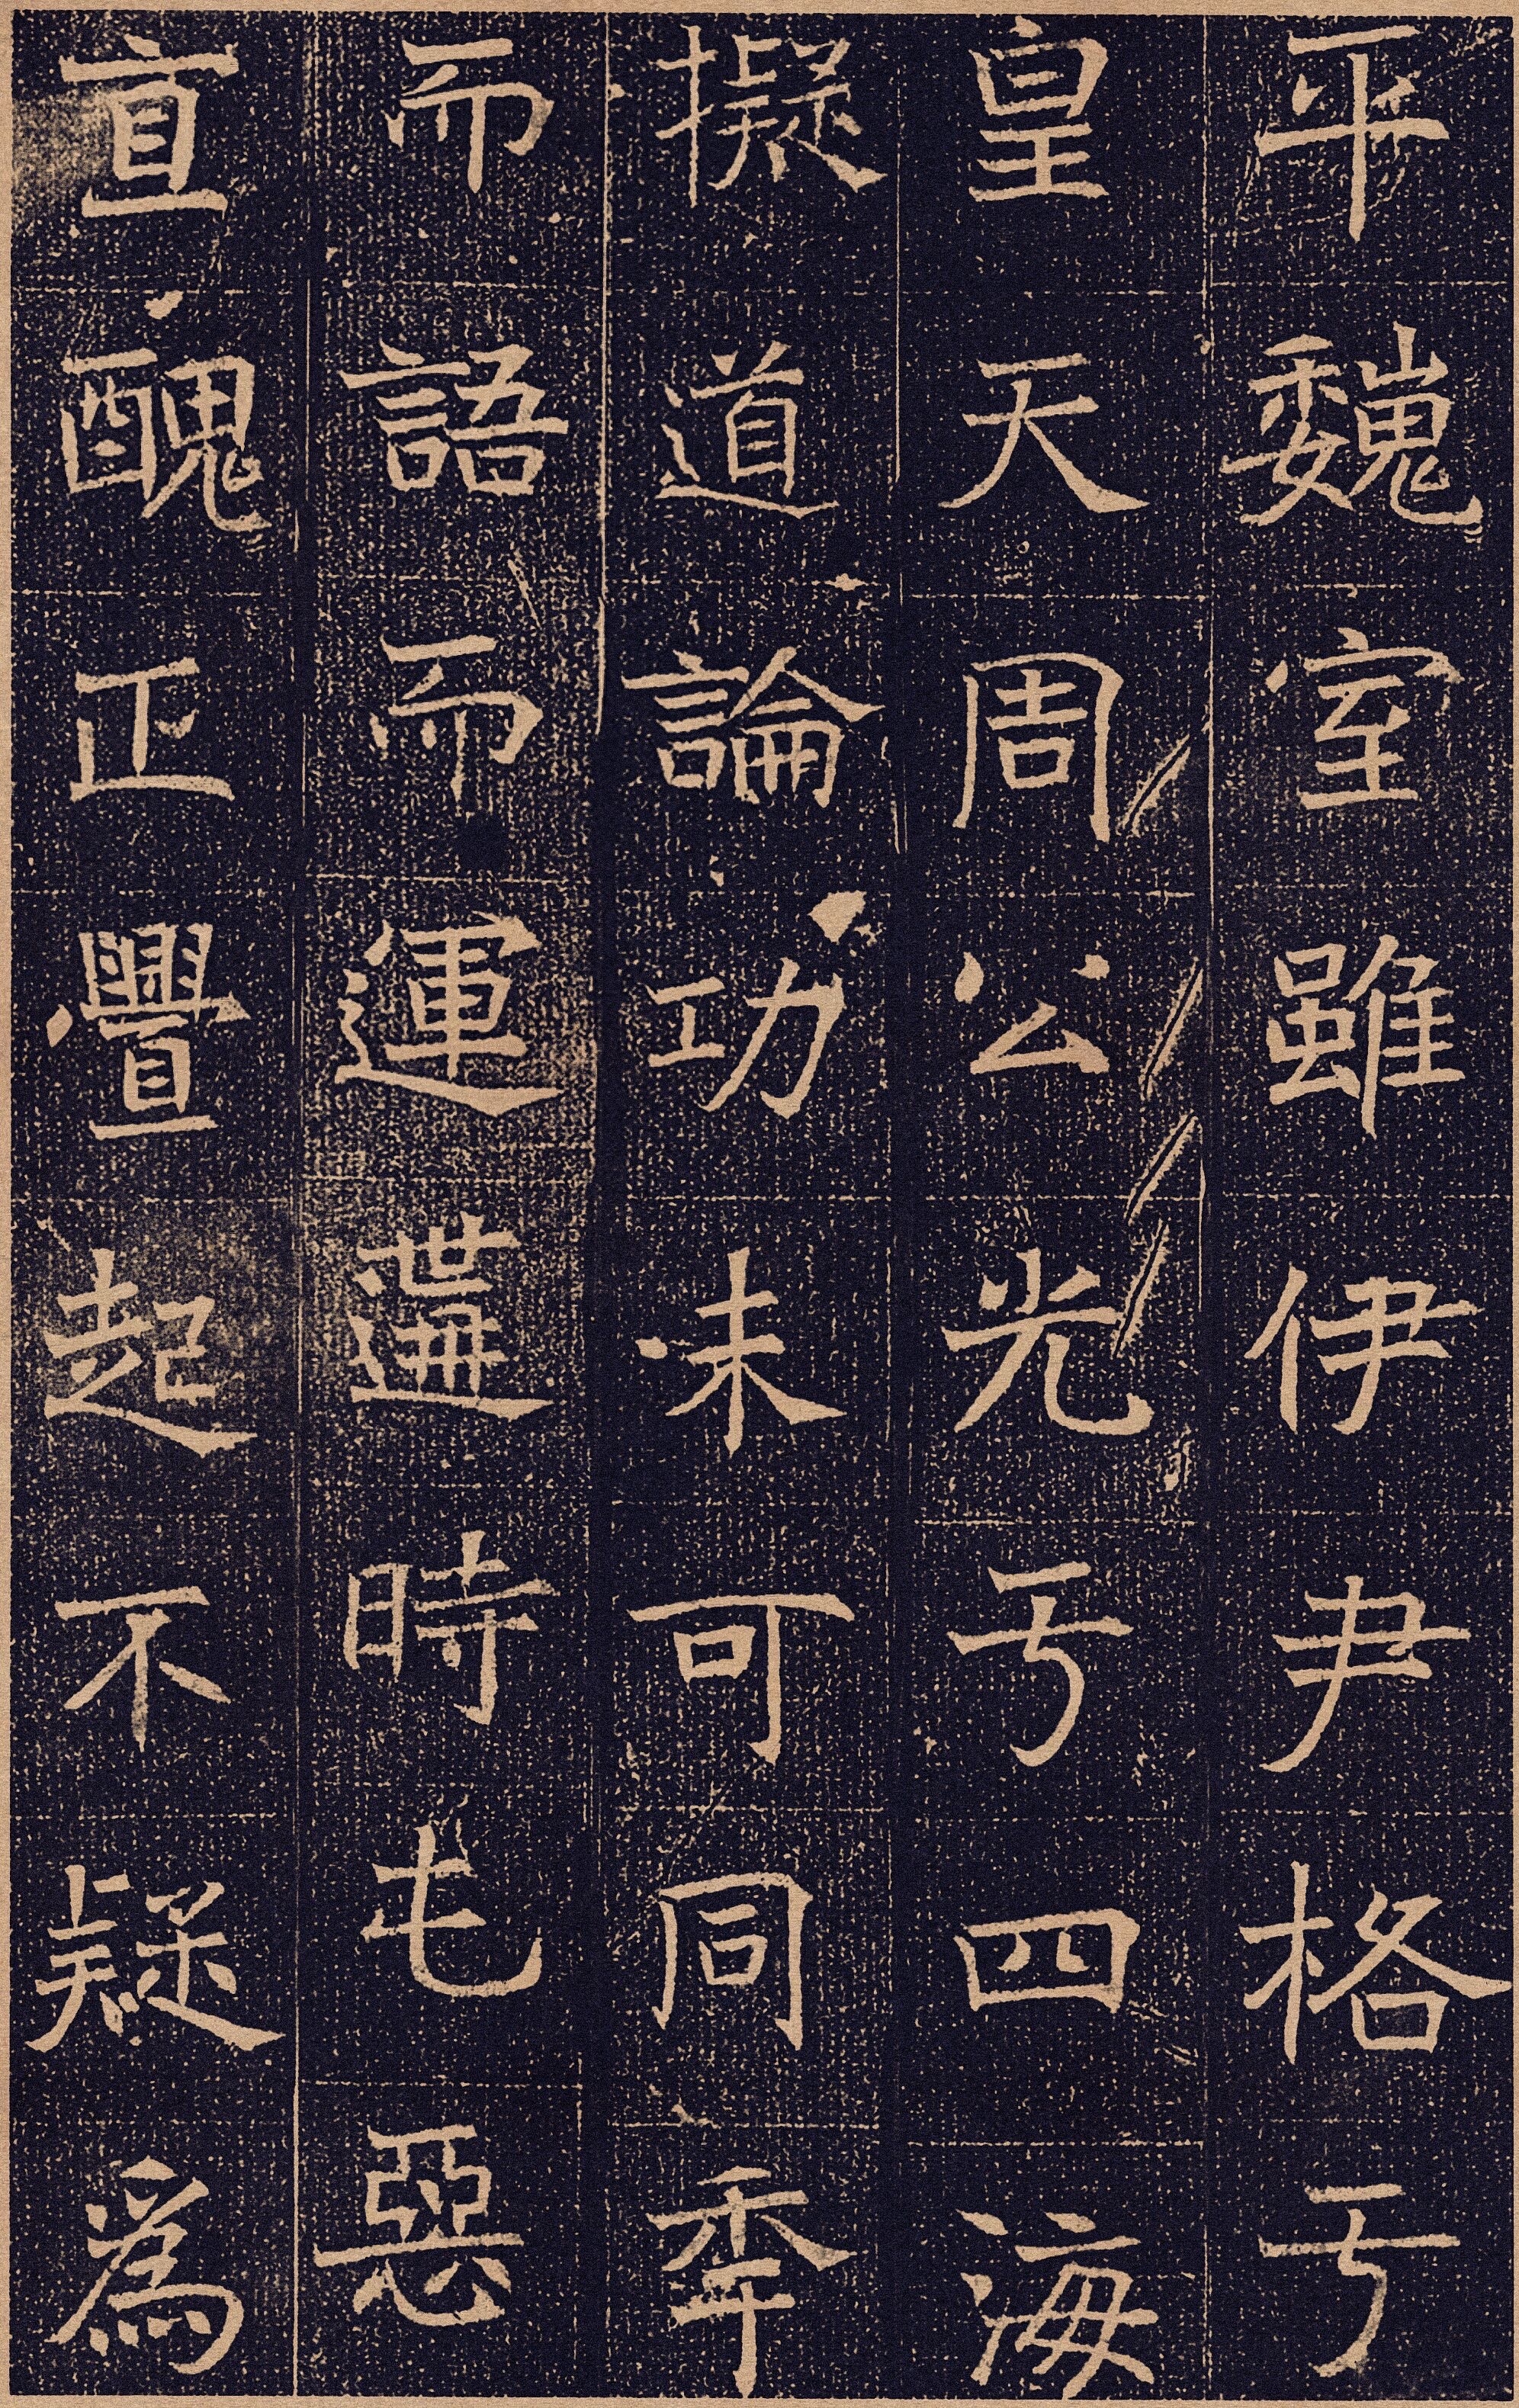 平魏室雖伊尹格于
皇天周公光于四海
擬道論功未可同年
而語而運遘時屯惡
直醜正舋起不疑爲